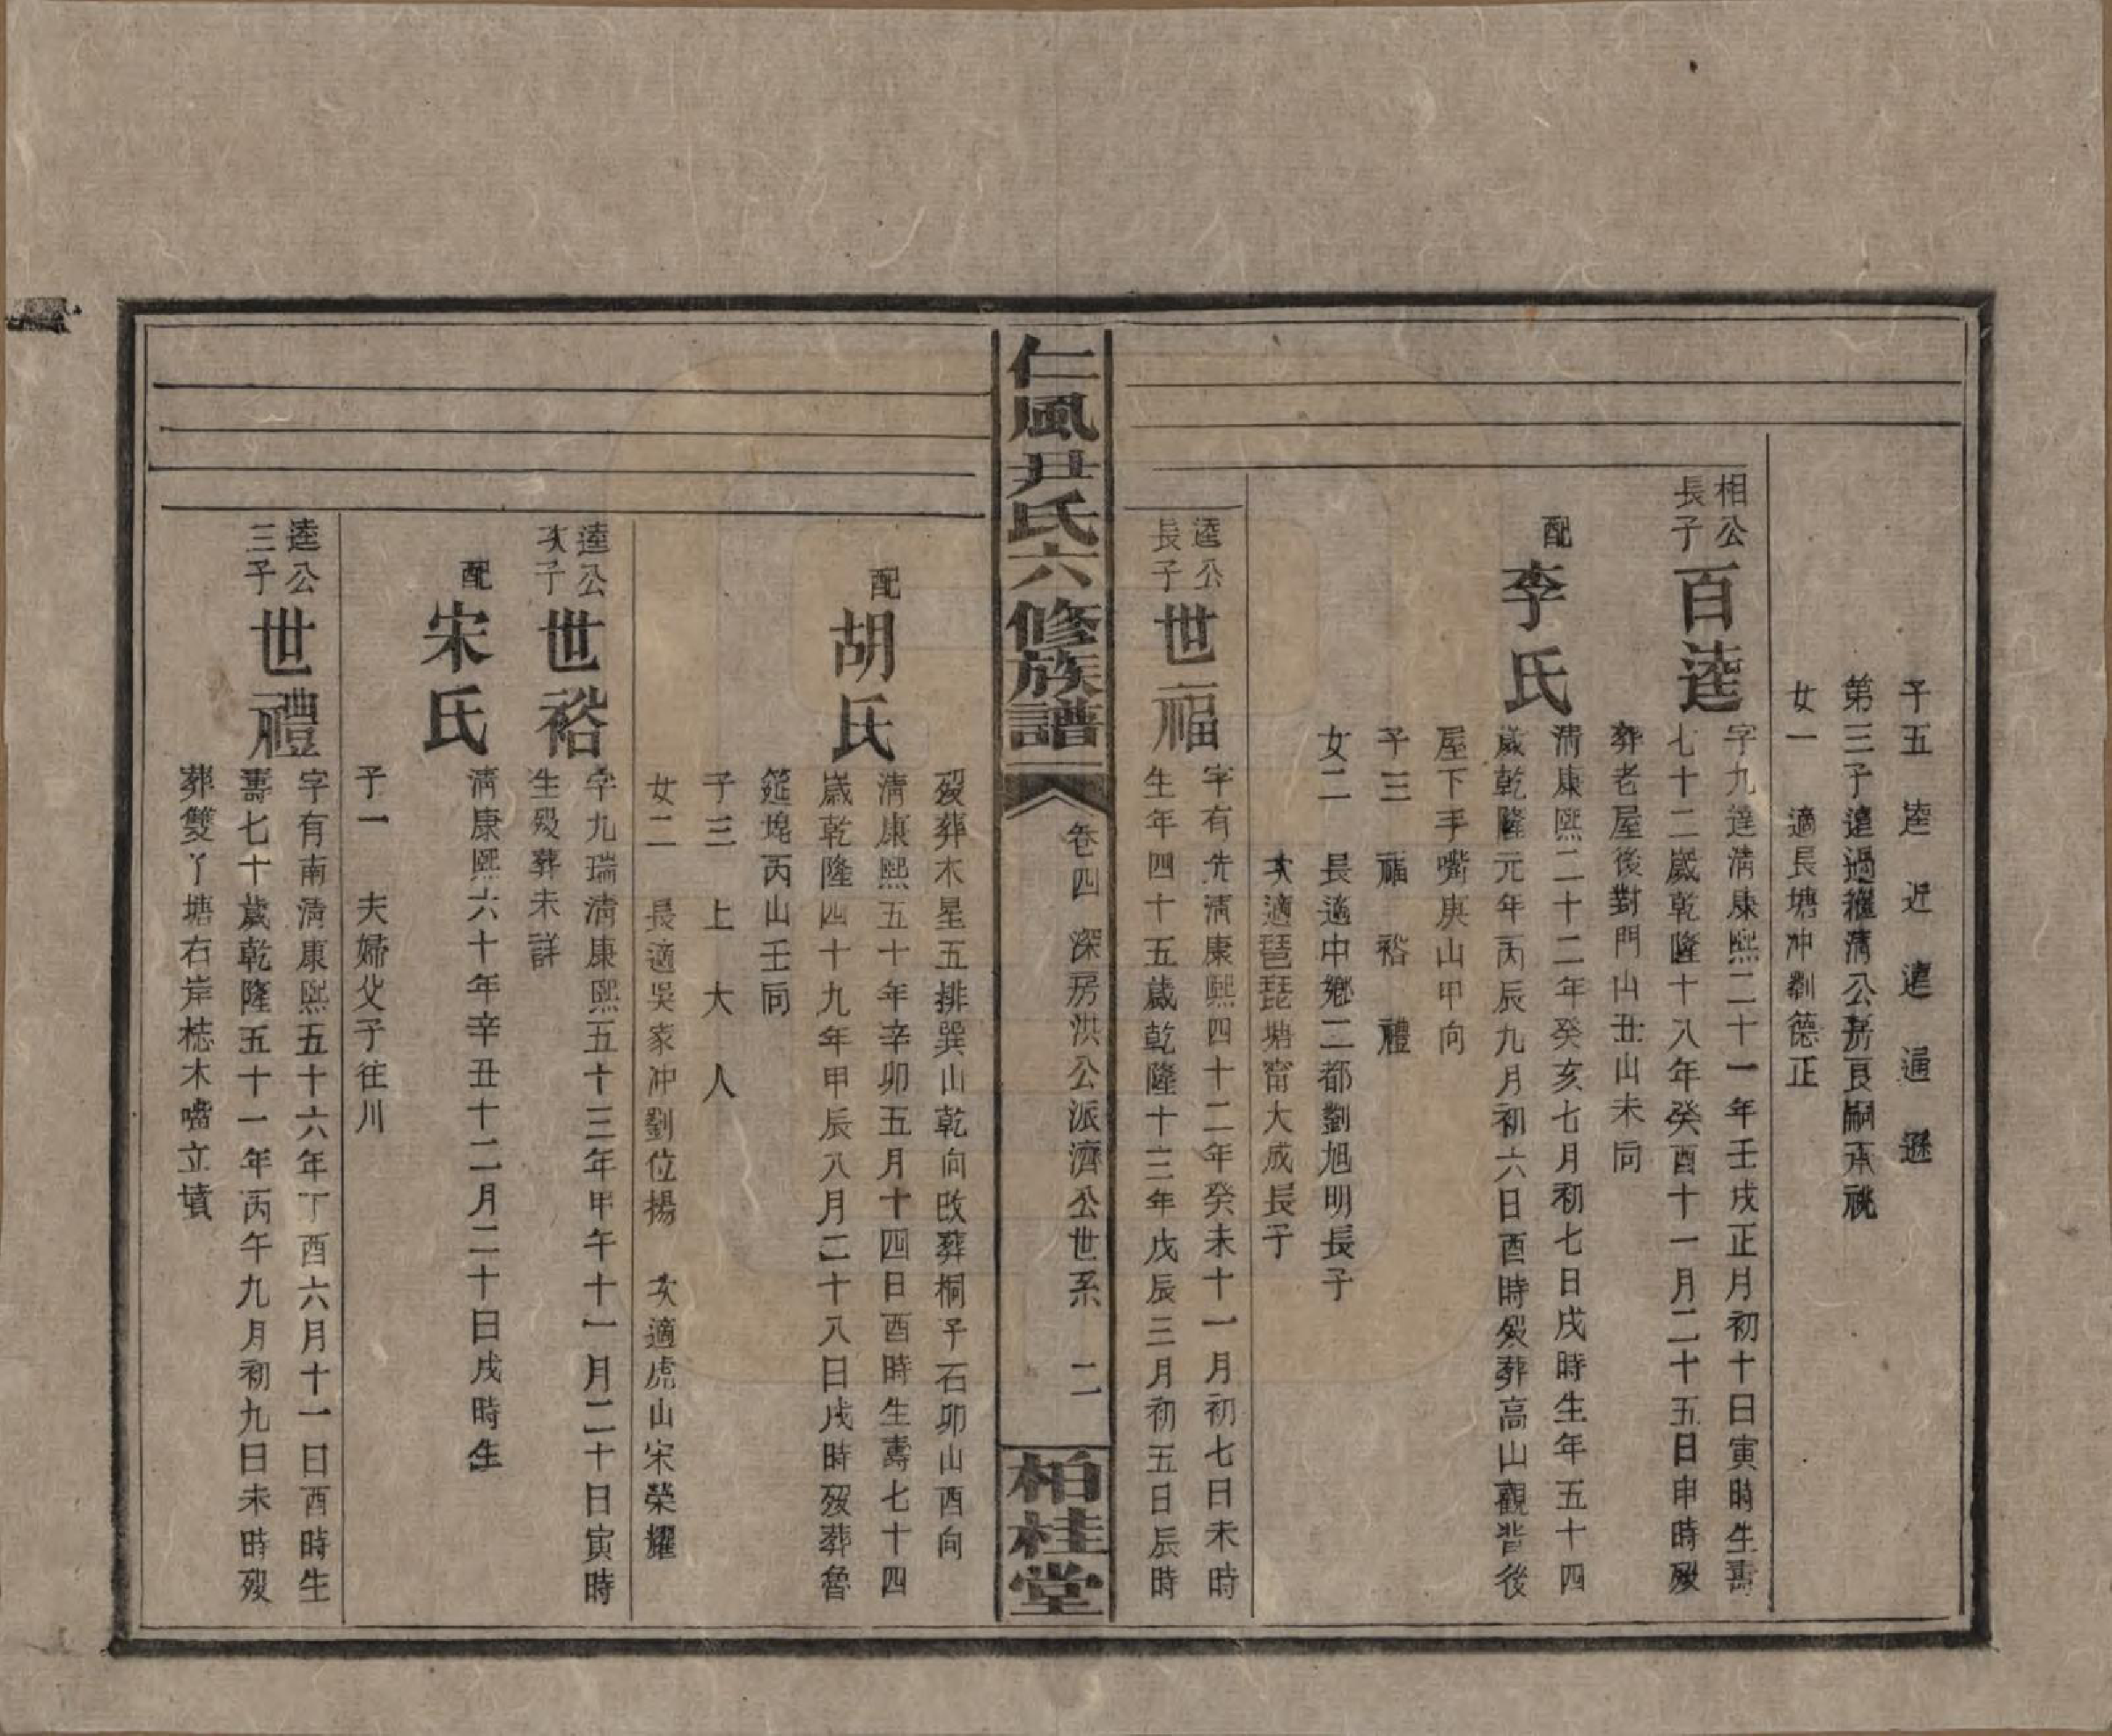 子五 逵 近 遠 逼 遜
第三子遠過繼淸公房良嗣承祧
女一 適長塘冲劉德正
相公
長子
百逵
字九達淸康熙二十一年壬戌正月初十日寅時生壽
七十二歲乾隆十八年癸酉十一月二十五日申時歿
葬老屋後對門山丑山未向
配
李氏
淸康熙二十二年癸亥七月初七日戌時生年五十四
歲乾隆元年丙辰九月初六日酉時歿葬高山觀背後
屋下手嘴庚山甲向
子三 福 裕 禮
女二 長適中鄉二都劉旭明長子
次適琵琶塘甯大成長子
逵公
長子
世福
字有先淸康熙四十二年癸未十一月初七日未時
生年四十五歲乾隆十三年戊辰三月初五日辰時
仁風尹氏六修族譜
卷四 深房洪公派濟公世系 二
柏桂堂
歿葬木星五排巽山乾向改葬桐子石卯山酉向
配
胡氏
淸康熙五十年辛卯五月十四日酉時生壽七十四
歲乾隆四十九年甲辰八月二十八日戌時歿葬魯
筵塊丙山壬向
子三 上 大 人
女二 長適吳家冲劉位揚 次適虎山宋榮耀
逵公
次子
世裕
字九瑞淸康熙五十三年甲午十一月二十日寅時
生歿葬未詳
配
宋氏
淸康熙六十年辛丑十二月二十日戌時生
子一 夫婦父子往川
逵公
三子
世禮
字有南淸康熙五十六年丁酉六月十一日酉時生
壽七十歲乾隆五十一年丙午九月初九日未時歿
葬雙丫塘右岸梽木嘴立墳